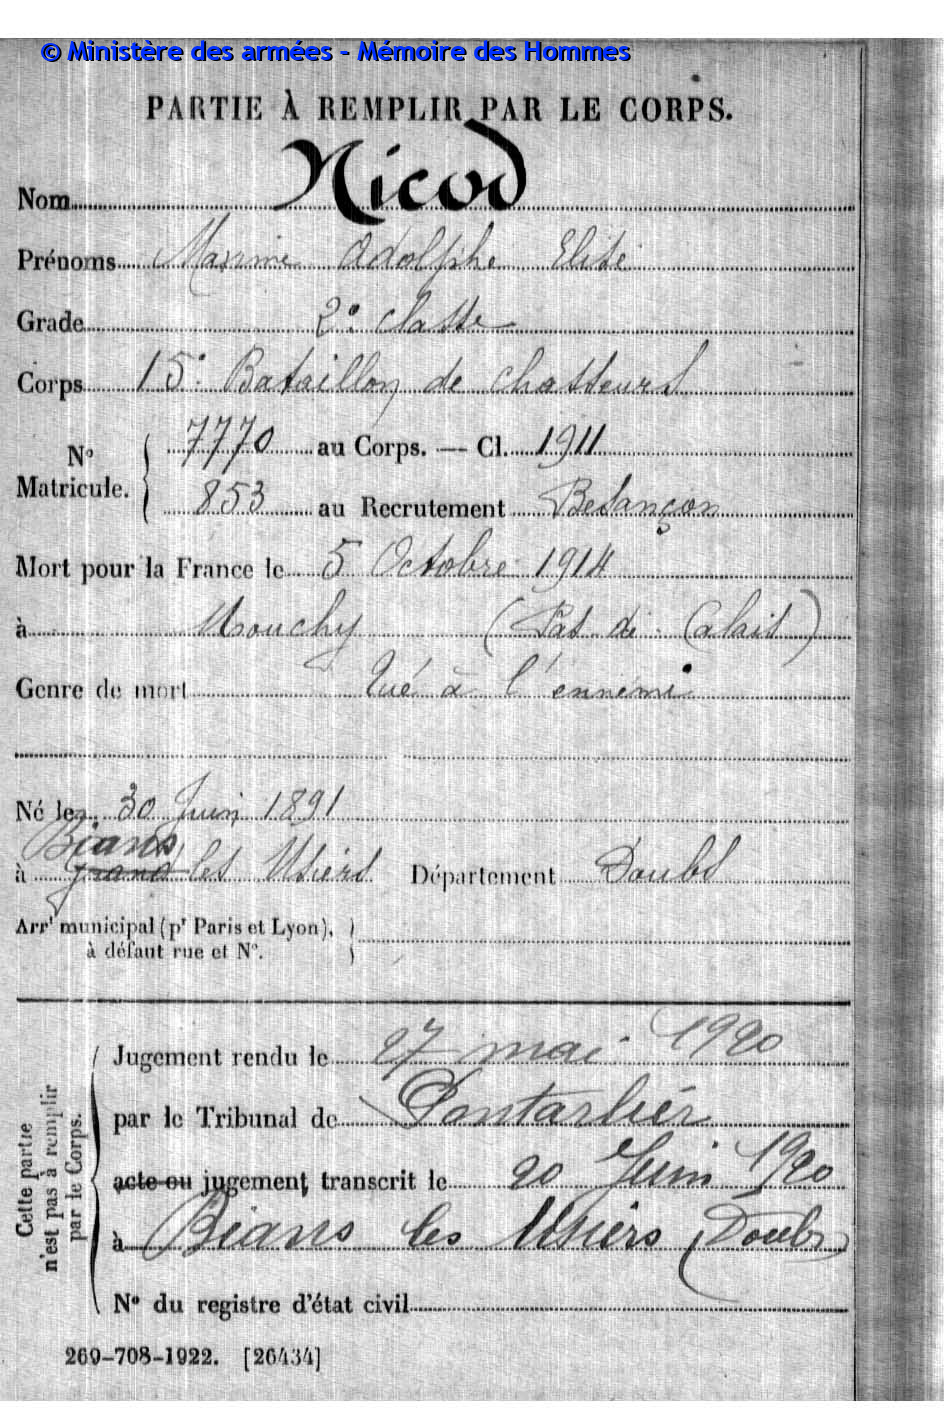 © Ministère des armées - Mémoire des Hommes
PARTIE À REMPLIR PAR LE CORPS.
Nom Nicod
Prénoms Maxime Adolphe Elisé
Grade 2e classe
Corps 15e Bataillon de chasseurs
No Matricule. { 7770 au Corps. — Cl. 1911
853 au Recrutement Besançon
Mort pour la France le 5 Octobre 1914
à Mouchy (Pas de Calais)
Genre de mort Tué à l'ennemi
Né le 30 Juin 1891
Bians
à grand les Usiers Département Doubs
Arrt municipal (pr Paris et Lyon),
à défaut rue et No.
Cette partie
n'est pas à remplir
par le Corps.
Jugement rendu le 27 mai 1920
par le Tribunal de Pontarlier
acte ou jugement transcrit le 20 Juin 1920
à Bians les Usiers (Doubs)
No du registre d'état civil
269-708-1922. [26434]